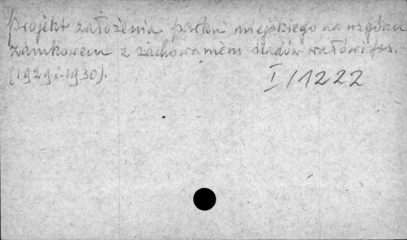 Projekt założenia parku miejskiego na wzgórzu
zamkowem z zachowaniem śladów wałów i fos.
(1929 i 1930).
I/1222